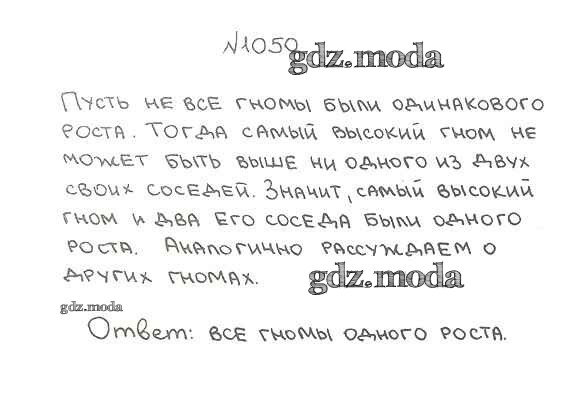 №1050
gdz.moda
Пусть не все гномы были одинакового
роста. Тогда самый высокий гном не
может быть выше ни одного из двух
своих соседей. Значит, самый высокий
гном и два его соседа были одного
роста. Аналогично рассуждаем о
других гномах.
gdz.moda
gdz.moda
Ответ: все гномы одного роста.